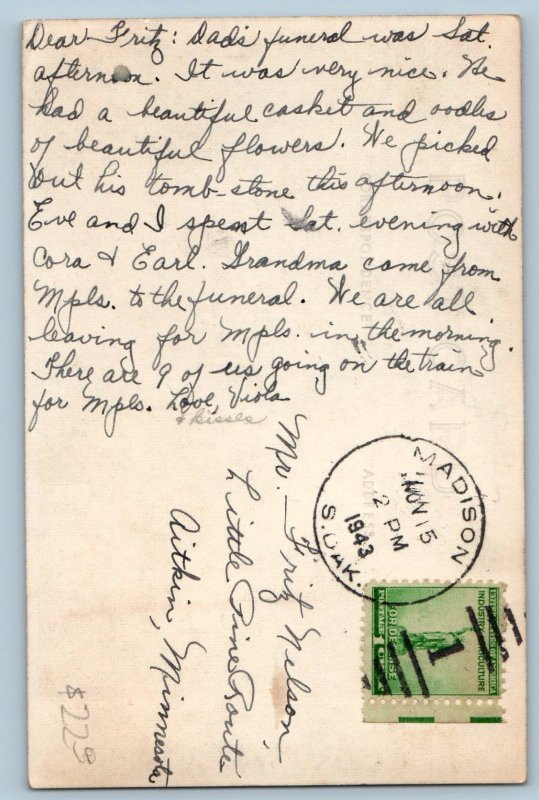 Dear Fritz: Dad's funeral was Sat.
afternoon. It was very nice. He
had a beautiful casket and oodles
of beautiful flowers. We picked
out his tomb-stone this afternoon.
Eve and I spent Sat. evening with
Cora & Earl. Grandma came from
Mpls. to the funeral. We are all
leaving for Mpls. in the morning.
There are 9 of us going on the train
for Mpls. Love, Viola
& kisses
Mr. Fritz Nelson
Little Pine Route
Aitkin, Minnesota
MADISON
NOV 15
2 PM
1943
S. DAK.
UNITED STATES OF AMERICA
INDUSTRY AGRICULTURE
FOR DEFENSE
POSTAGE 1 CENT
1
POST CARD
ADDRESS